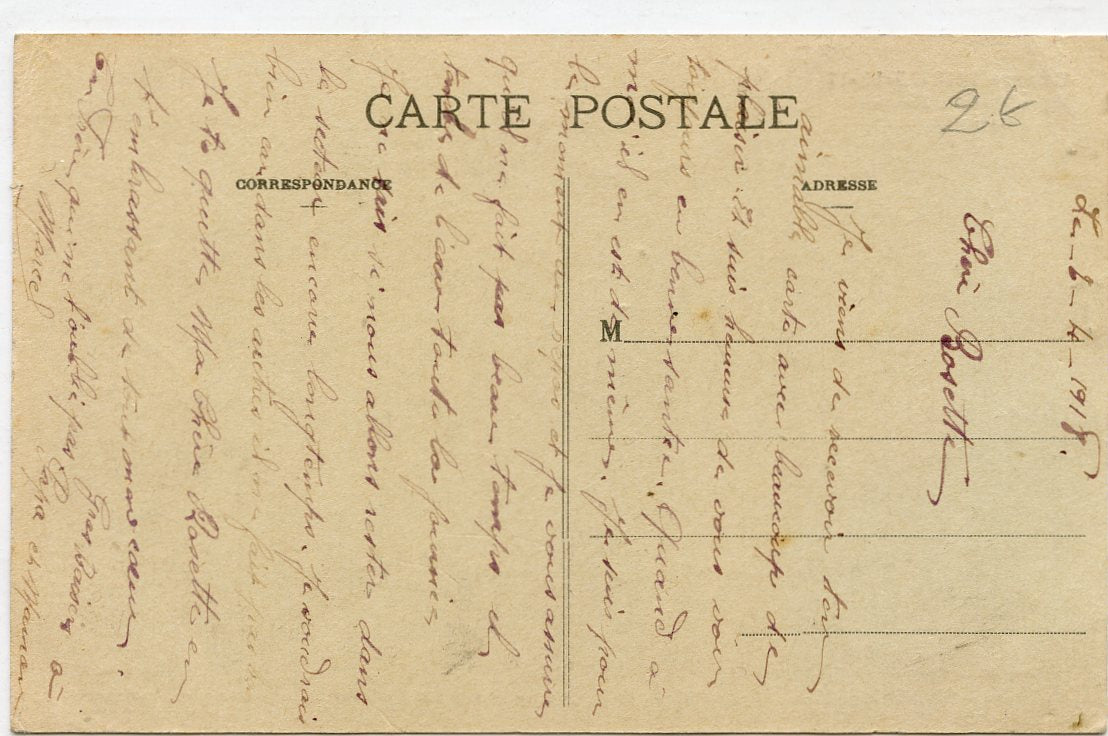 CARTE POSTALE
CORRESPONDANCE
ADRESSE
M
2€
Le 6-4-1918.
Cheri Rosette
Je viens de recevoir ton
aimable carte avec beaucoup de
plaisir et suis heureuse de vous voir
toujours en bonne santé. Quand à
moi il en est de même. Je suis pour
le moment au repos et je vous assure
qu'il ne fait pas beau temps il
tombe de l'eau toute la journée
Je ne sais si nous allons rester dans
le secteur encore longtemps. Je voudrais
bien car dans les autres il ne fait pas
Je te quitte Ma Chère Rosette en
t' embrassant de tout mon cœur.
Ton Frère qui ne t'oublie pas Gros baisers à
Marcel Papa et Maman